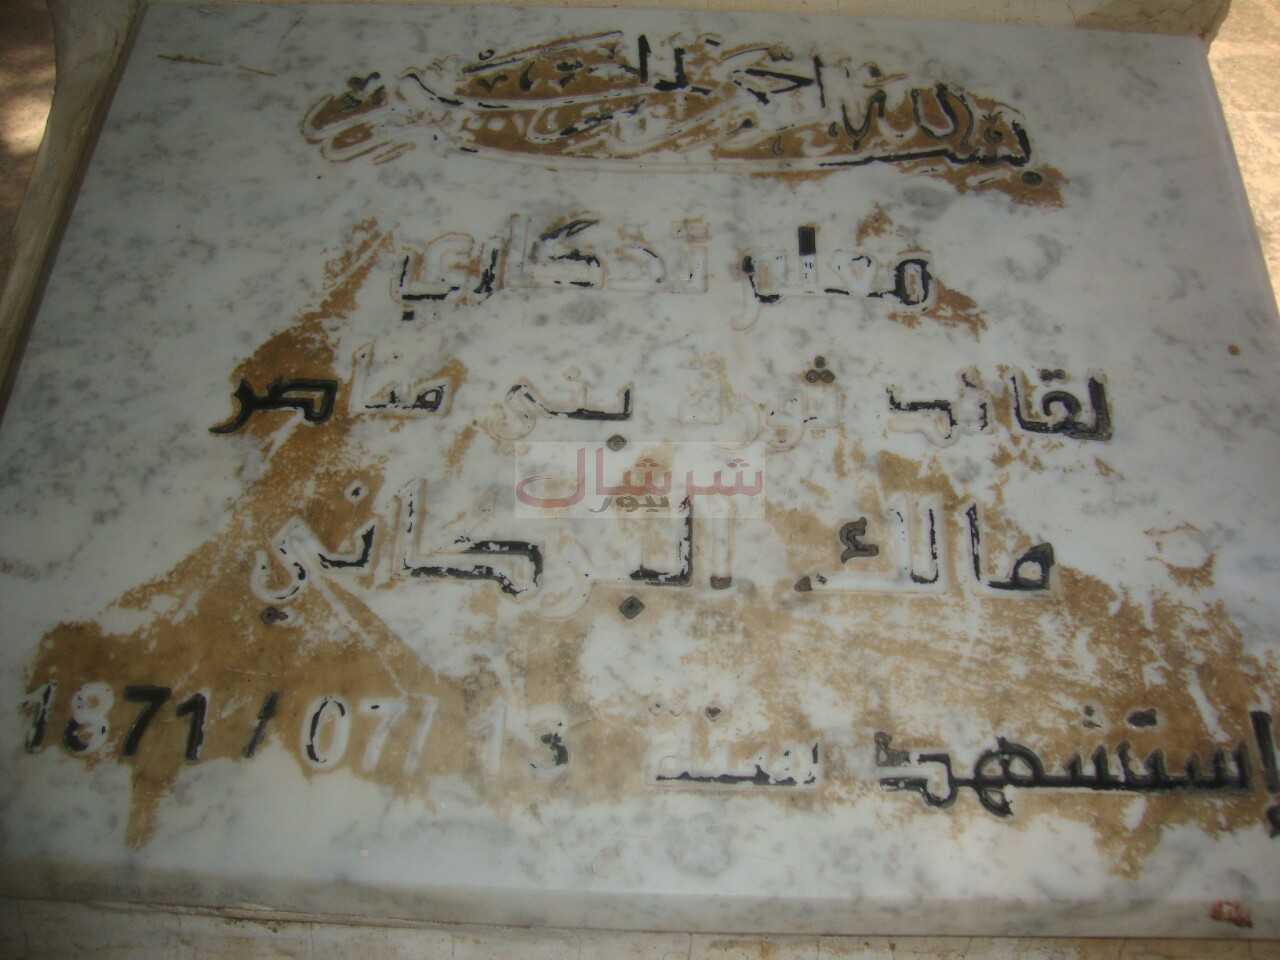 بسم الله الرحمن الرحيم
معلم تذكاري
لقائد ثورة بني مناصر
مالك البركاني
إستشهد سنة 13 /07/ 1871
شرشال
نيوز